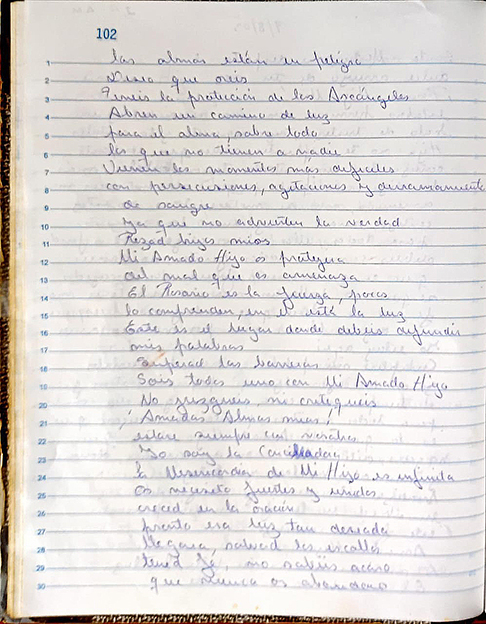 102
las almas están en peligro
Deseo que oreis
Teneis la protección de los Arcángeles
Abren un camino de luz
para el alma, sobre todo
los que no tienen a nadie
Vienen los momentos más dificiles
con persecusiones, agitaciones y derramamiento
de sangre
ya que no advierten la verdad
Rezad hijos mios
Mi Amado Hijo os protegera
del mal que os amenaza
El Rosario es la fuerza, pocos
lo comprenden, en el está la luz
Este es el lugar donde debeis difundir
mis palabras
Superad las barreras
Sois todos uno con Mi Amado Hijo
No juzgueis, ni critiqueis
¡Amadas Almas mias!
estare siempre con vosotros
Yo soy la Conciliadora
la Misericordia de Mi Hijo es infinita
os necesito fuertes y unidos
creced en la oración
pronto esa luz tan deseada
llegara, salvad los escollos
tened fe, no sabéis acaso
que nunca os abandono
1
2
3
4
5
6
7
8
9
10
11
12
13
14
15
16
17
18
19
20
21
22
23
24
25
26
27
28
29
30